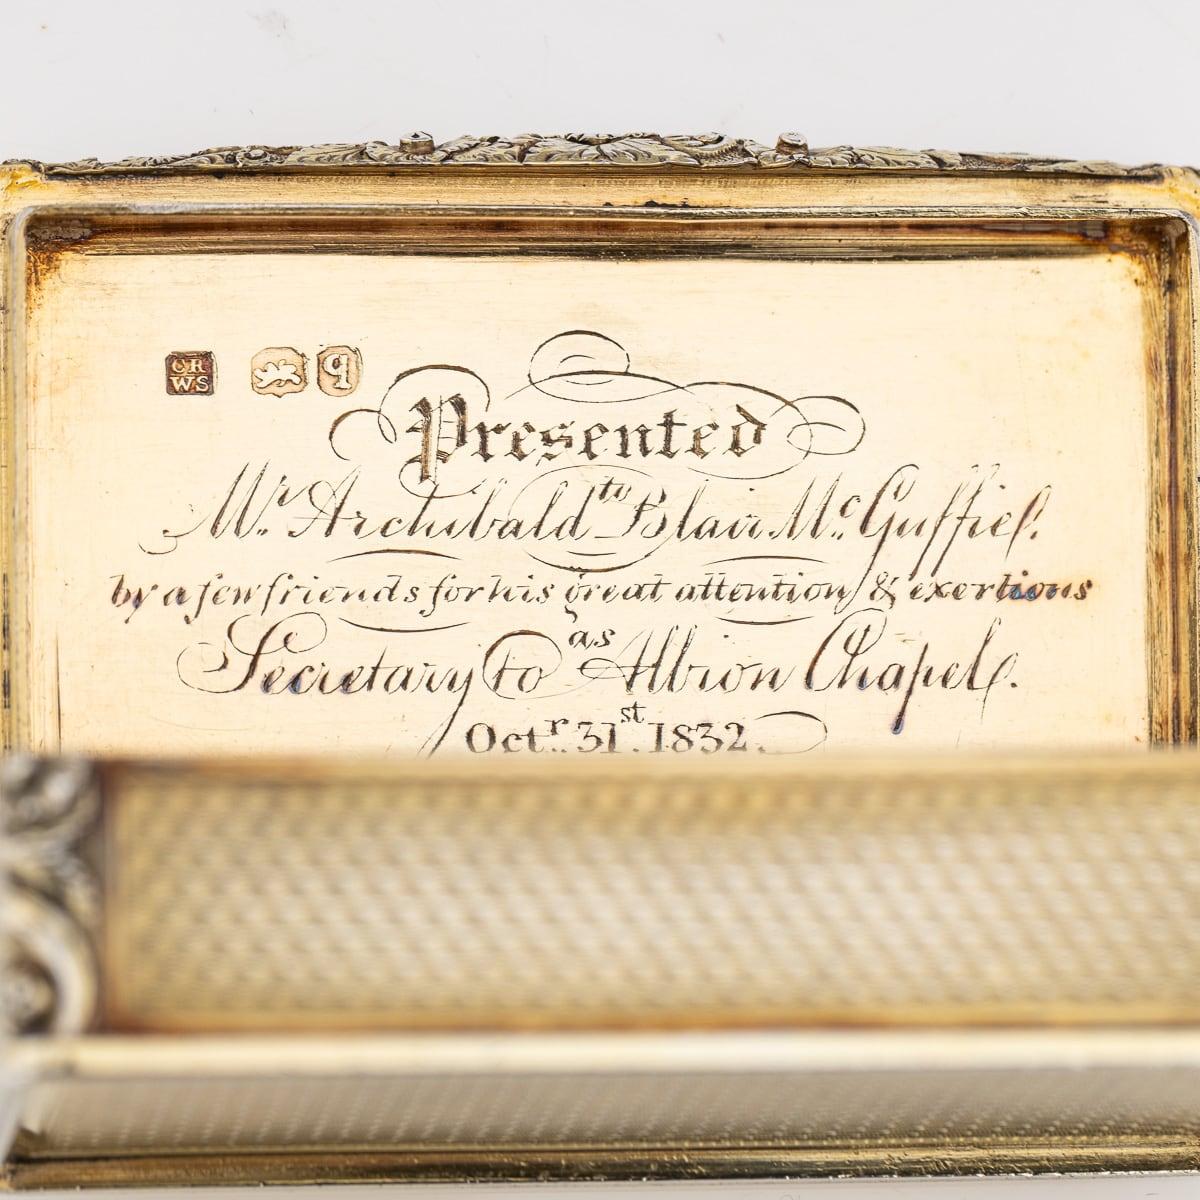 CR
WS
q
Presented
to
Mr. Archibald Blair Mc. Guffie.
by a few friends for his great attention & exertions
as
Secretary to Albion Chapel.
Octr. 31st. 1832.